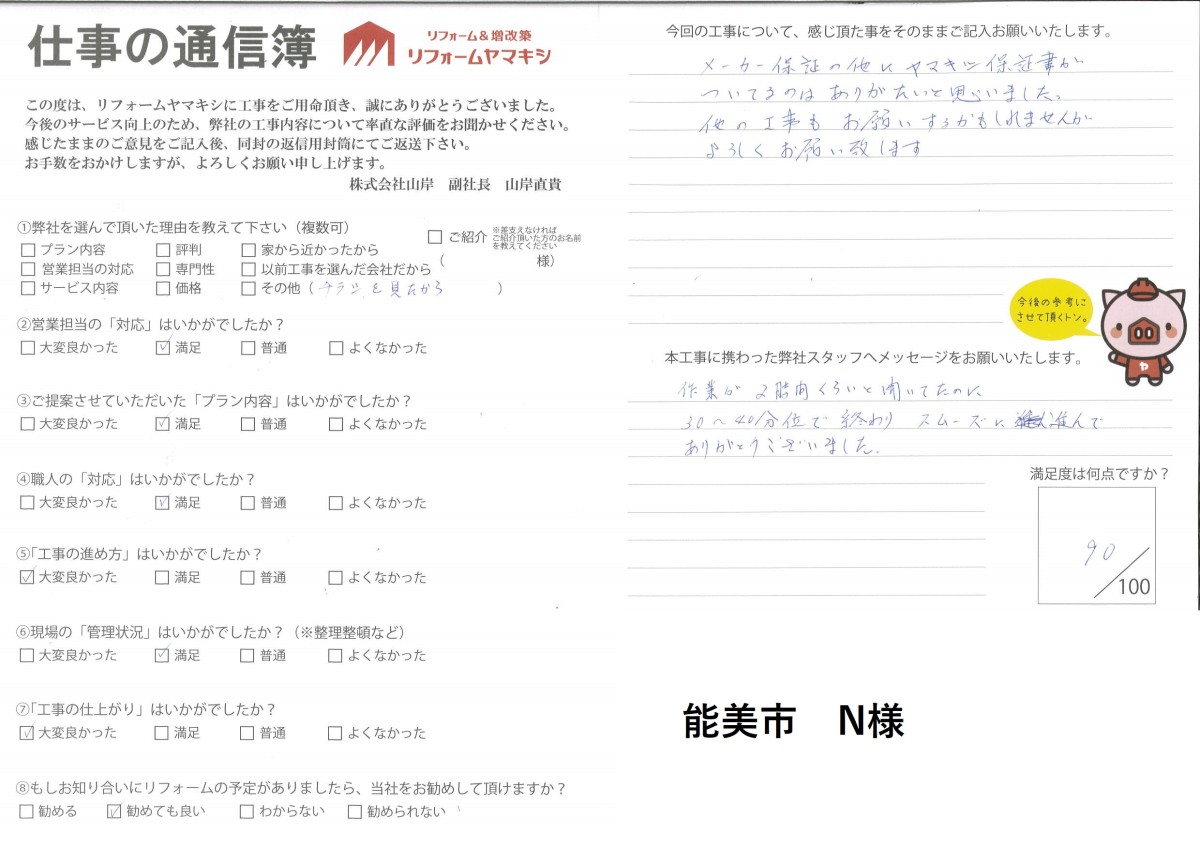 仕事の通信簿
リフォーム&増改築
リフォームヤマキシ
この度は、リフォームヤマキシに工事をご用命頂き、誠にありがとうございました。
今後のサービス向上のため、弊社の工事内容について率直な評価をお聞かせください。
感じたままのご意見をご記入後、同封の返信用封筒にてご返送下さい。
お手数をおかけしますが、よろしくお願い申し上げます。
株式会社山岸　副社長　山岸直貴
①弊社を選んで頂いた理由を教えて下さい（複数可）
□ プラン内容 □ 評判 □ 家から近かったから
□ ご紹介 ※差支えなければ
ご紹介頂いた方のお名前
を教えてください
（　　　　　　様）
□ 営業担当の対応 □ 専門性 □ 以前工事を選んだ会社だから
□ サービス内容 □ 価格 □ その他（チラシを見たから　　）
②営業担当の「対応」はいかがでしたか？
□ 大変良かった ☑ 満足 □ 普通 □ よくなかった
③ご提案させていただいた「プラン内容」はいかがでしたか？
□ 大変良かった ☑ 満足 □ 普通 □ よくなかった
④職人の「対応」はいかがでしたか？
□ 大変良かった ☑ 満足 □ 普通 □ よくなかった
⑤「工事の進め方」はいかがでしたか？
☑ 大変良かった □ 満足 □ 普通 □ よくなかった
⑥現場の「管理状況」はいかがでしたか？（※整理整頓など）
□ 大変良かった ☑ 満足 □ 普通 □ よくなかった
⑦「工事の仕上がり」はいかがでしたか？
☑ 大変良かった □ 満足 □ 普通 □ よくなかった
⑧もしお知り合いにリフォームの予定がありましたら、当社をお勧めして頂けますか？
□ 勧める ☑ 勧めても良い □ わからない □ 勧められない
今回の工事について、感じ頂た事をそのままご記入お願いいたします。
メーカー保証の他に ヤマキシ保証書が
ついてるのは ありがたいと思いました。
他の工事も お願いするかもしれませんが
よろしく お願い致します
今後の参考に
させて頂くトン。
ヤ
本工事に携わった弊社スタッフへメッセージをお願いいたします。
作業が 2時間くらいと聞いてたのに
30〜40分位で 終わり スムーズに 進んで
ありがとうございました。
満足度は何点ですか？
90
/100
能美市　N様